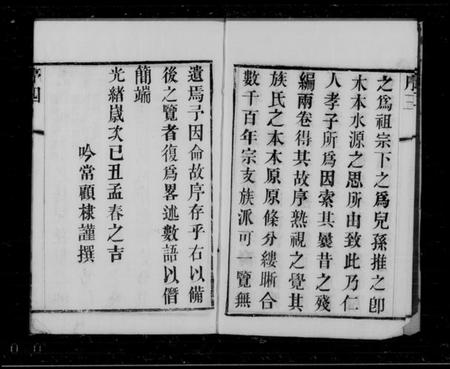 序三
之爲祖宗下之爲兒孫推之卽
木本水源之思所由致此乃仁
人孝子所爲因索其曩昔之殘
編兩卷得其故序熟視之覺其
族氏之本木原原條分縷晰合
數千百年宗支族派可一覽無
遺焉予因侖故序存乎右以備
後之覽者復爲畧述數語以僭
簡端
光緒歲次己丑孟春之吉
吟常頋棣謹撰
序四